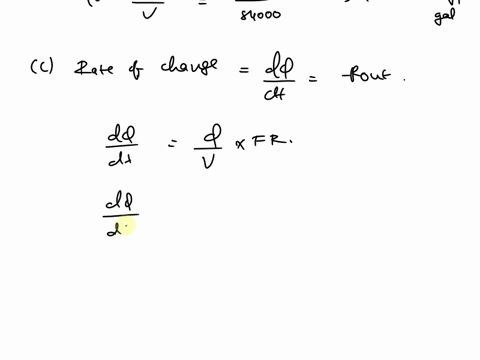 V = 84000 gal
(c) Rate of change = dQ/dt = Rout.
dQ/dt = Q/V × FR.
dQ/d